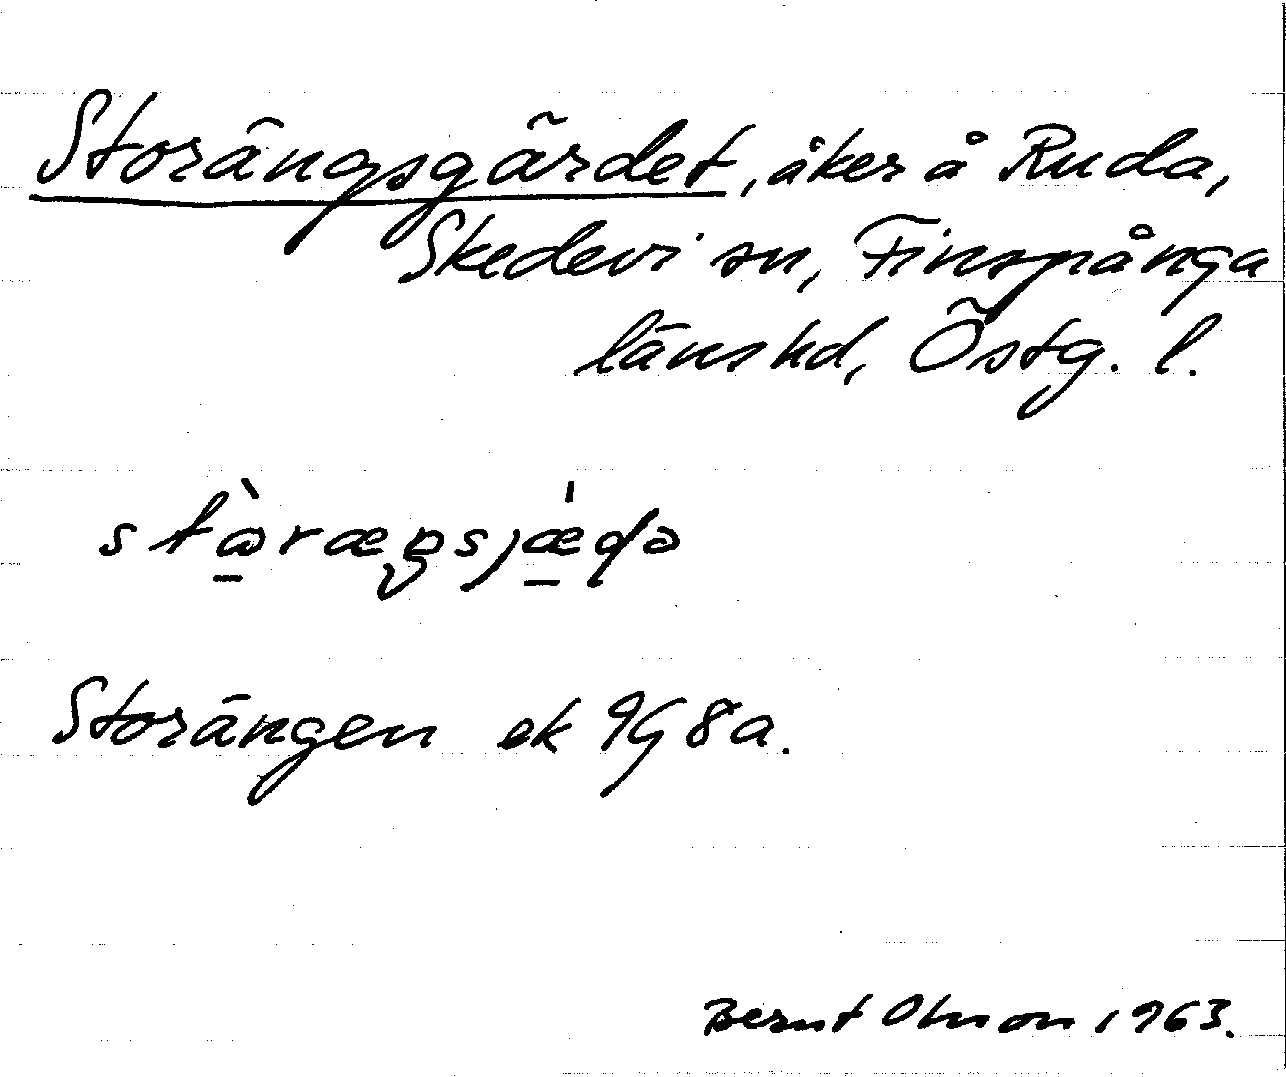 Storängsgärdet, åker å Ruda,
Skedevi sn, Finspånga
länshd, Östg. l.
Storängen ek 9G 8a.
Bernt Olsson 1963.